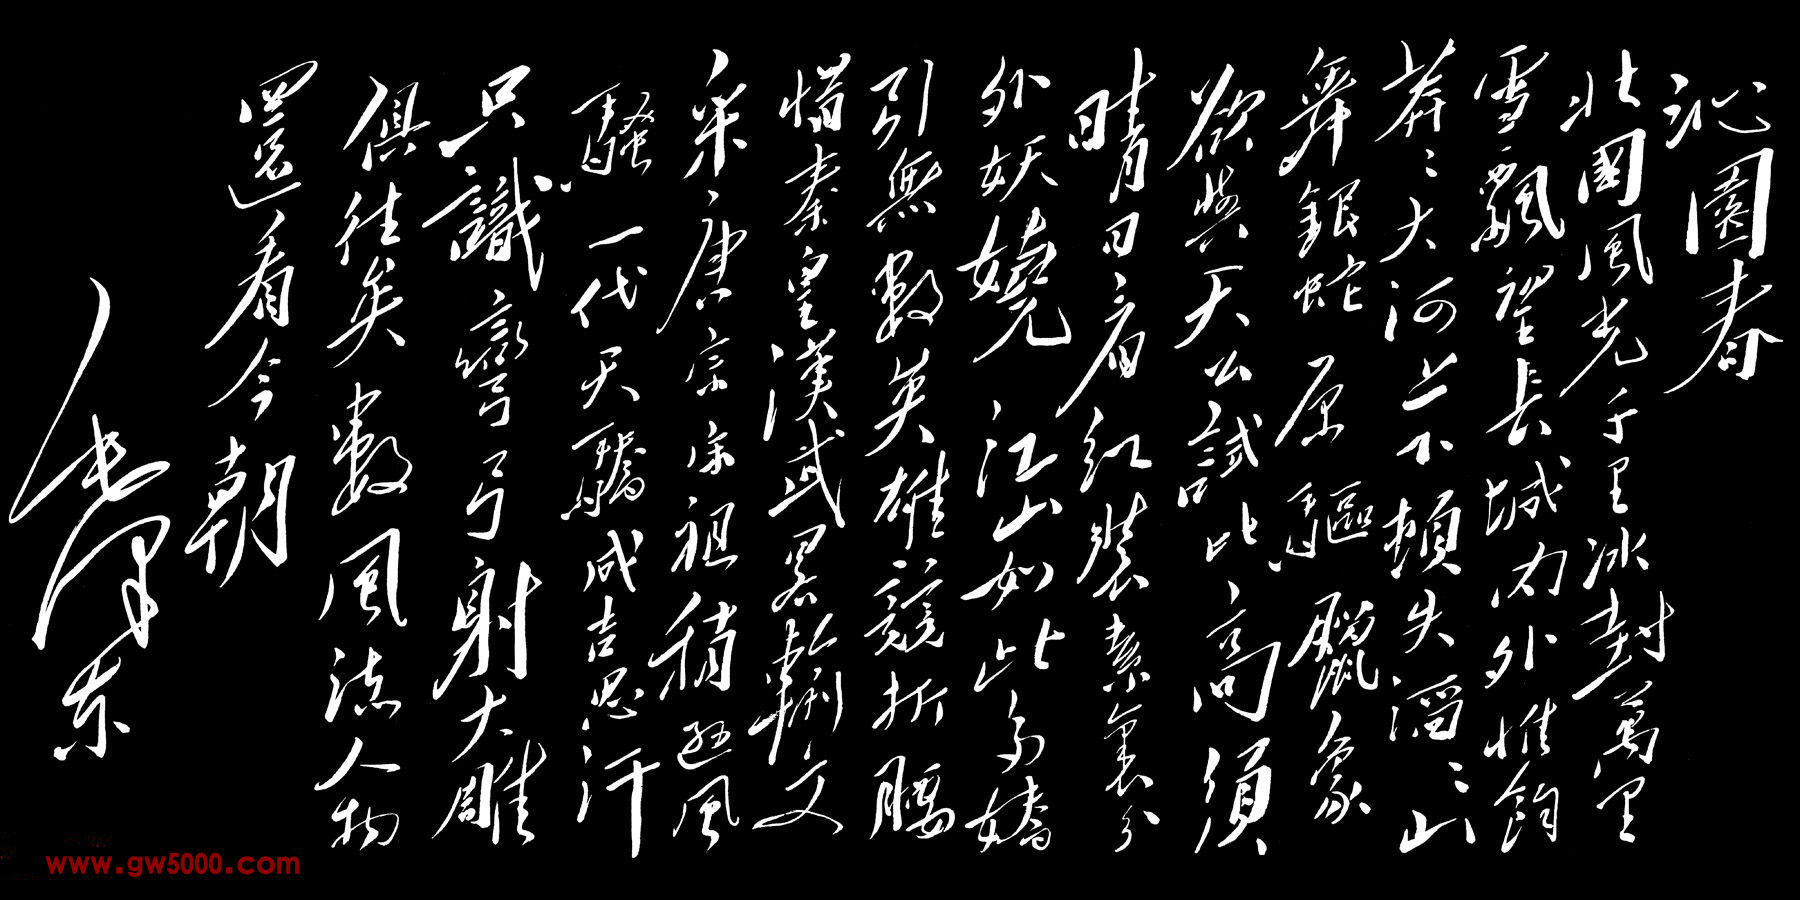 沁園春
北國風光千里冰封萬里
雪飄望長城內外惟餘
莽〻大河上下頓失滔〻山
舞銀蛇原驅臘象
欲與天公試比高須
晴日看紅裝素裹分
外妖嬈江山如此多嬌
引無數英雄競折腰
惜秦皇漢武畧輸文
采唐宗宋祖稍遜風
騷一代天驕成吉思汗
只識彎弓射大雕
俱往矣數風流人物
還看今朝
毛澤東
www.gw5000.com